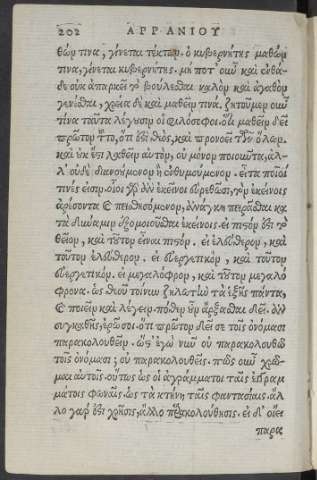 202 ΑΡΡΙΑΝΟΥ
θών τινα, γίνεται τέκτων. ὁ κυβερνήτης μαθών
τινα, γίνεται κυβερνήτης. μή ποτ' οὖν καὶ ἐνθά-
δε οὐκ ἀπαρκεῖ τὸ βούλεσθαι καλὸν καὶ ἀγαθὸν
γενέσθαι, χρεία δὲ καὶ μαθεῖν τινα. ζητοῦμεν οὖν
τίνα ταῦτα λέγουσιν οἱ φιλόσοφοι. ὅτι μαθεῖν δεῖ
πρῶτον τοῦτο, ὅτι ἐστὶ θεὸς, καὶ προνοεῖ τῶν ὅλων.
καὶ οὐκ ἔστι λαθεῖν αὐτὸν, οὐ μόνον ποιοῦντα, ἀλ-
λ' οὐδὲ διανοούμενον ἢ ἐνθυμούμενον. εἶτα ποῖοί
τινές εἰσιν. οἷοι γὰρ ἂν ἐκεῖνοι εὑρεθῶσι, τὸν ἐκείνοις
ἀρέσοντα καὶ πεισθησόμενον, ἀνάγκη πειρᾶσθαι κα-
τὰ δύναμιν ἐξομοιοῦσθαι ἐκείνοις. εἰ πιστόν ἐστι τὸ
θεῖον, καὶ τοῦτον εἶναι πιστόν. εἰ ἐλεύθερον, καὶ
τοῦτον ἐλεύθερον. εἰ εὐεργετικὸν, καὶ τοῦτον
εὐεργετικόν. εἰ μεγαλόφρον, καὶ τοῦτον μεγαλό
φρονα. ὡς θεοῦ τοίνυν ζηλωτὴν τὰ ἑξῆς πάντα,
καὶ ποιεῖν καὶ λέγειν. πόθεν οὖν ἄρξασθαι δεῖ. ἂν
συγκαθῇς, ἐρῶ σοι. ὅτι πρῶτον δεῖ σε τοῖς ὀνόμασι
παρακολουθεῖν. ὥστ' ἐγὼ νῦν οὐ παρακολουθῶ
τοῖς ὀνόμασι; οὐ παρακολουθεῖς. πῶς οὖν χρῶ-
μαι αὐτοῖς. οὕτως ὡς οἱ ἀγράμματοι ταῖς ἐγγραμ
μάτοις φωναῖς. ὡς τὰ κτήνη ταῖς φαντασίαις. ἄλ
λο γάρ ἐστι χρῆσις, ἄλλο παρακολούθησις. εἰ δ' οἴει
παρας